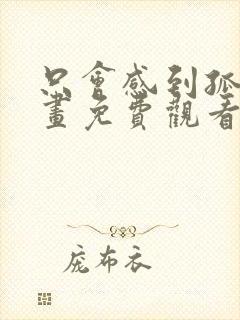 只會感到孤
畫免費觀看
庞布衣